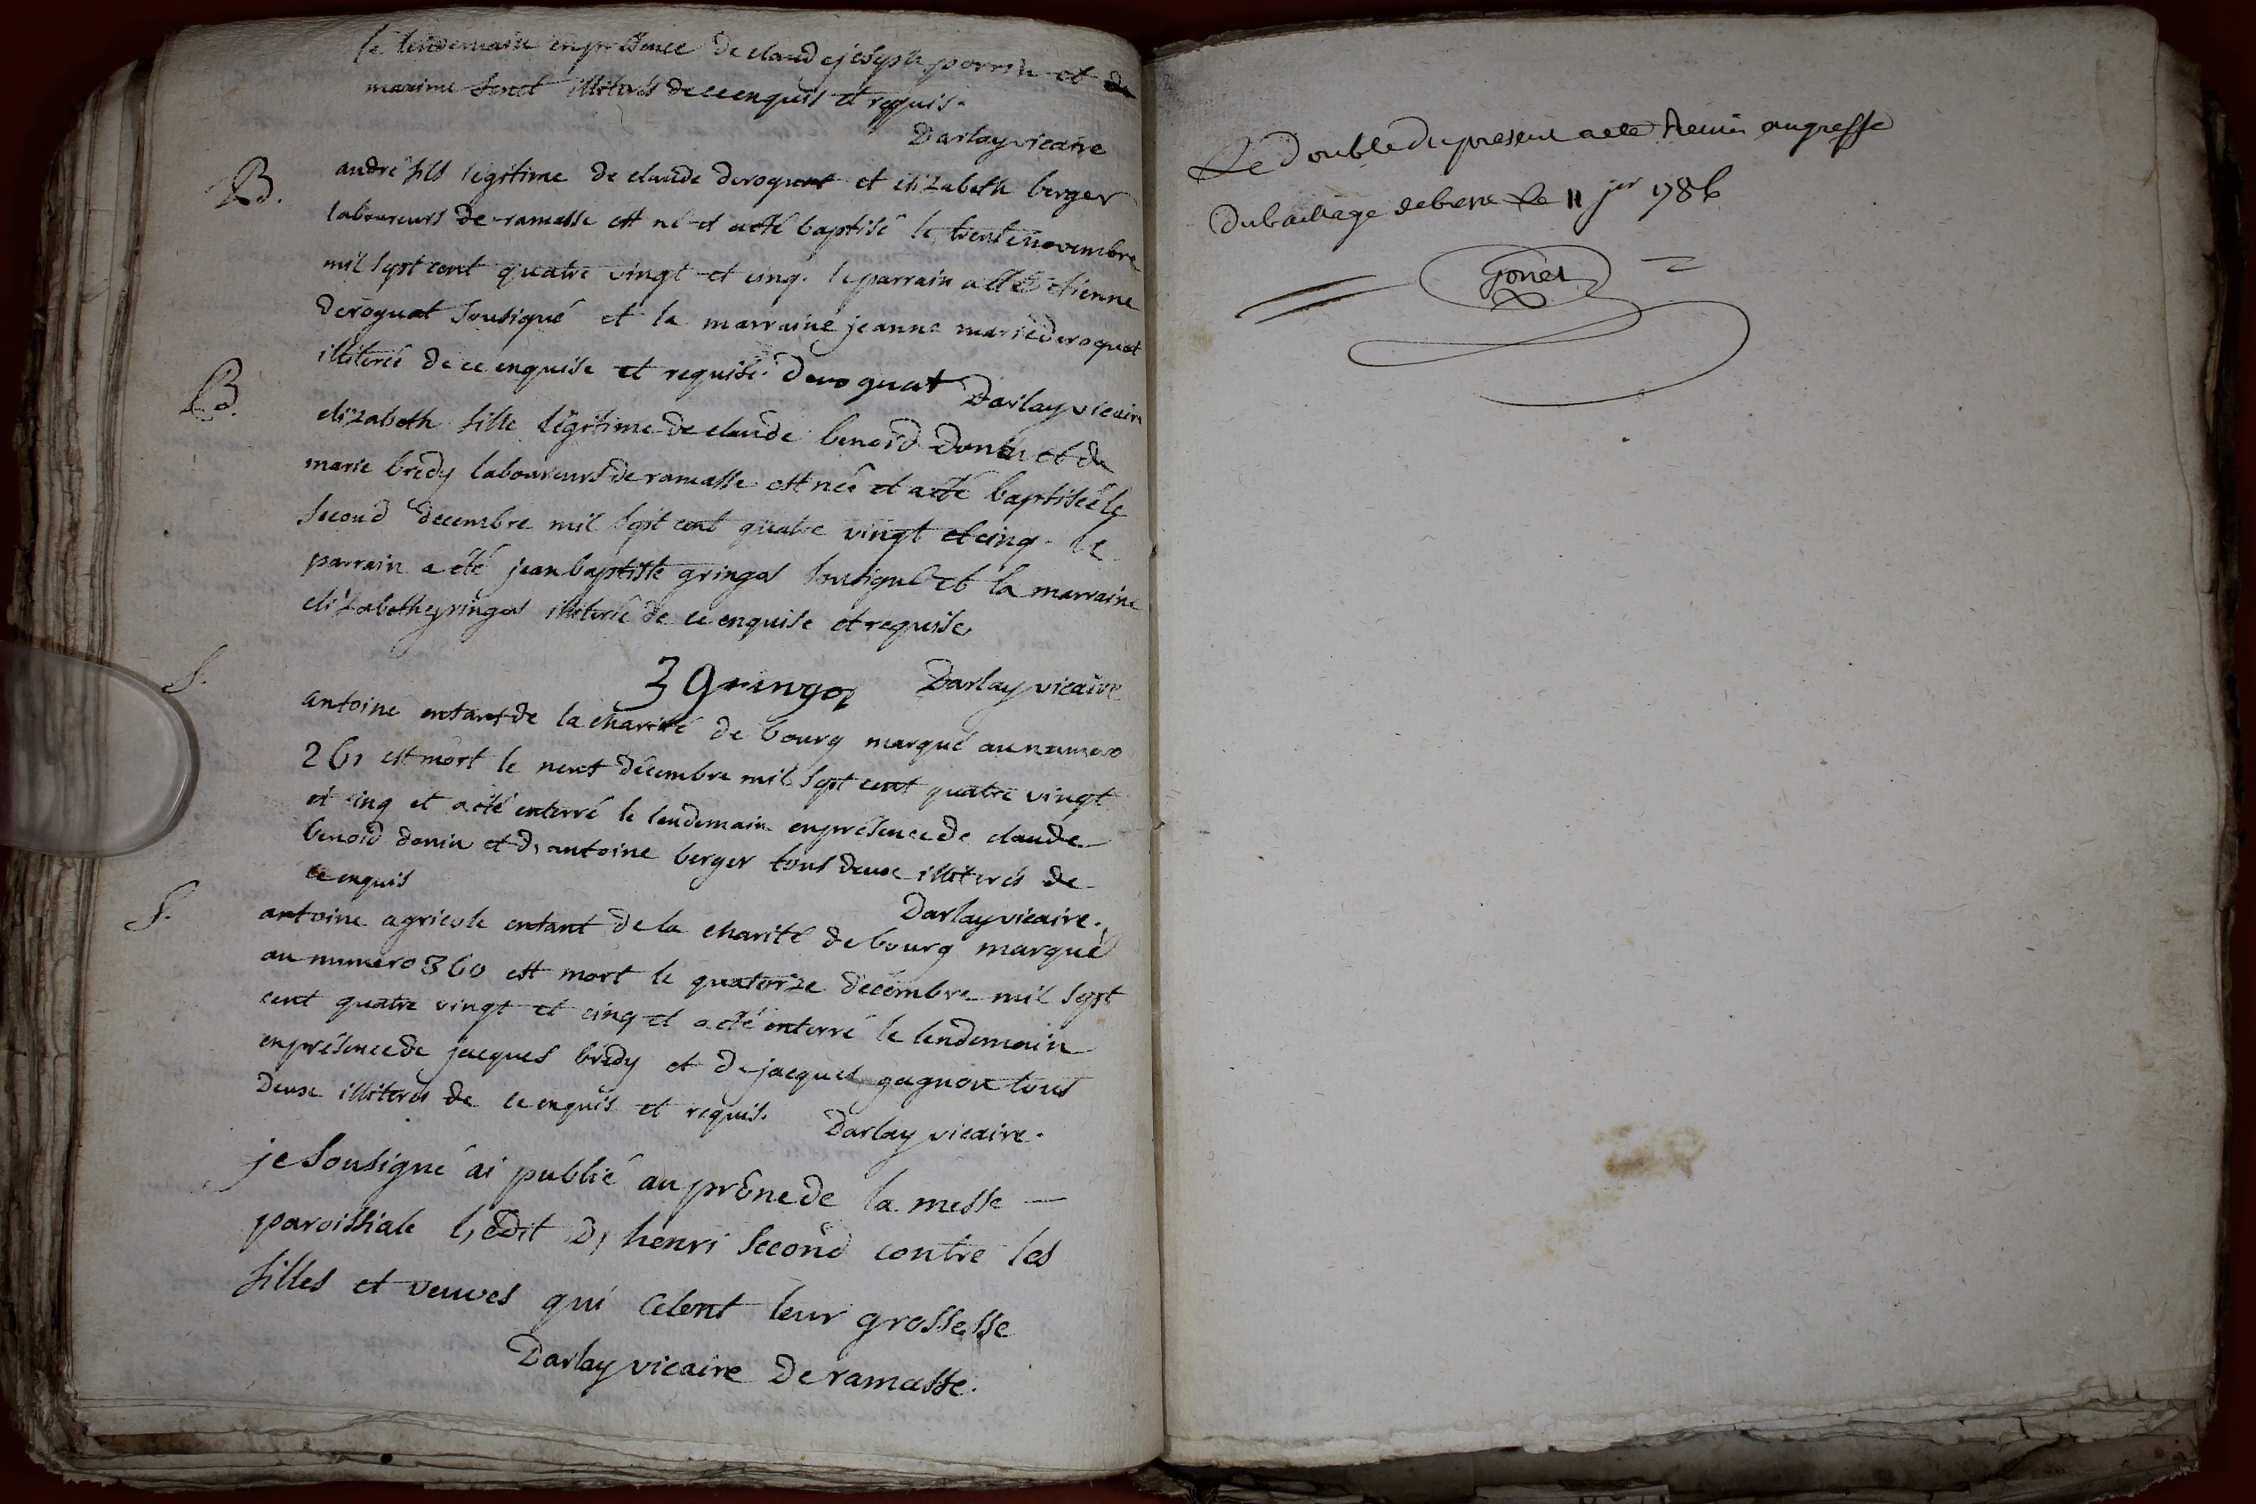 le lendemain en présence de claude joseph perrin et de
maxime senet illiterés de ce enquis et requis.
Darlay vicaire
B. andré fils légitime de claude deroquat et elizabeth berger
laboureurs de ramasse est né et a été baptisé le trente novembre
mil sept cent quatre vingt et cinq. le parrain a été etienne
deroquat sousigné et la marraine jeanne marie deroquat
illiterée de ce enquise et requise. Deroquat Darlay vicaire
B. elizabeth fille légitime de claude benoid donin et de
marie bredy laboureurs de ramasse est née et a été baptisée le
second decembre mil sept cent quatre vingt et cinq. le
parrain a été jean baptiste gringoz sousigné et la marraine
elizabeth gringoz illiterée de ce enquise et requise
J Gringoz Darlay vicaire
S. antoine enfant de la charité de bourg marqué au numero
261 est mort le neuf décembre mil sept cent quatre vingt
et cinq et a été enterré le lendemain en présence de claude
benoid donin et d, antoine berger tous deux illiterés de
ce enquis
Darlay vicaire.
S. antoine agricole enfant de la charité de bourg marqué
au numero 360 est mort le quatorze décembre mil sept
cent quatre vingt et cinq et a été enterré le lendemain
en présence de jacques bredy et de jacques gagnon tous
deux illiterés de ce enquis et requis.
Darlay vicaire.
je sousigné ai publié au prône de la messe
paroissiale l, édit d, henri second contre les
filles et veuves qui celent leur grossesse
Darlay vicaire de ramasse.
Le double du present acte Remis au greffe
du bailliage de bresse le 11 jer 1786
Gonet